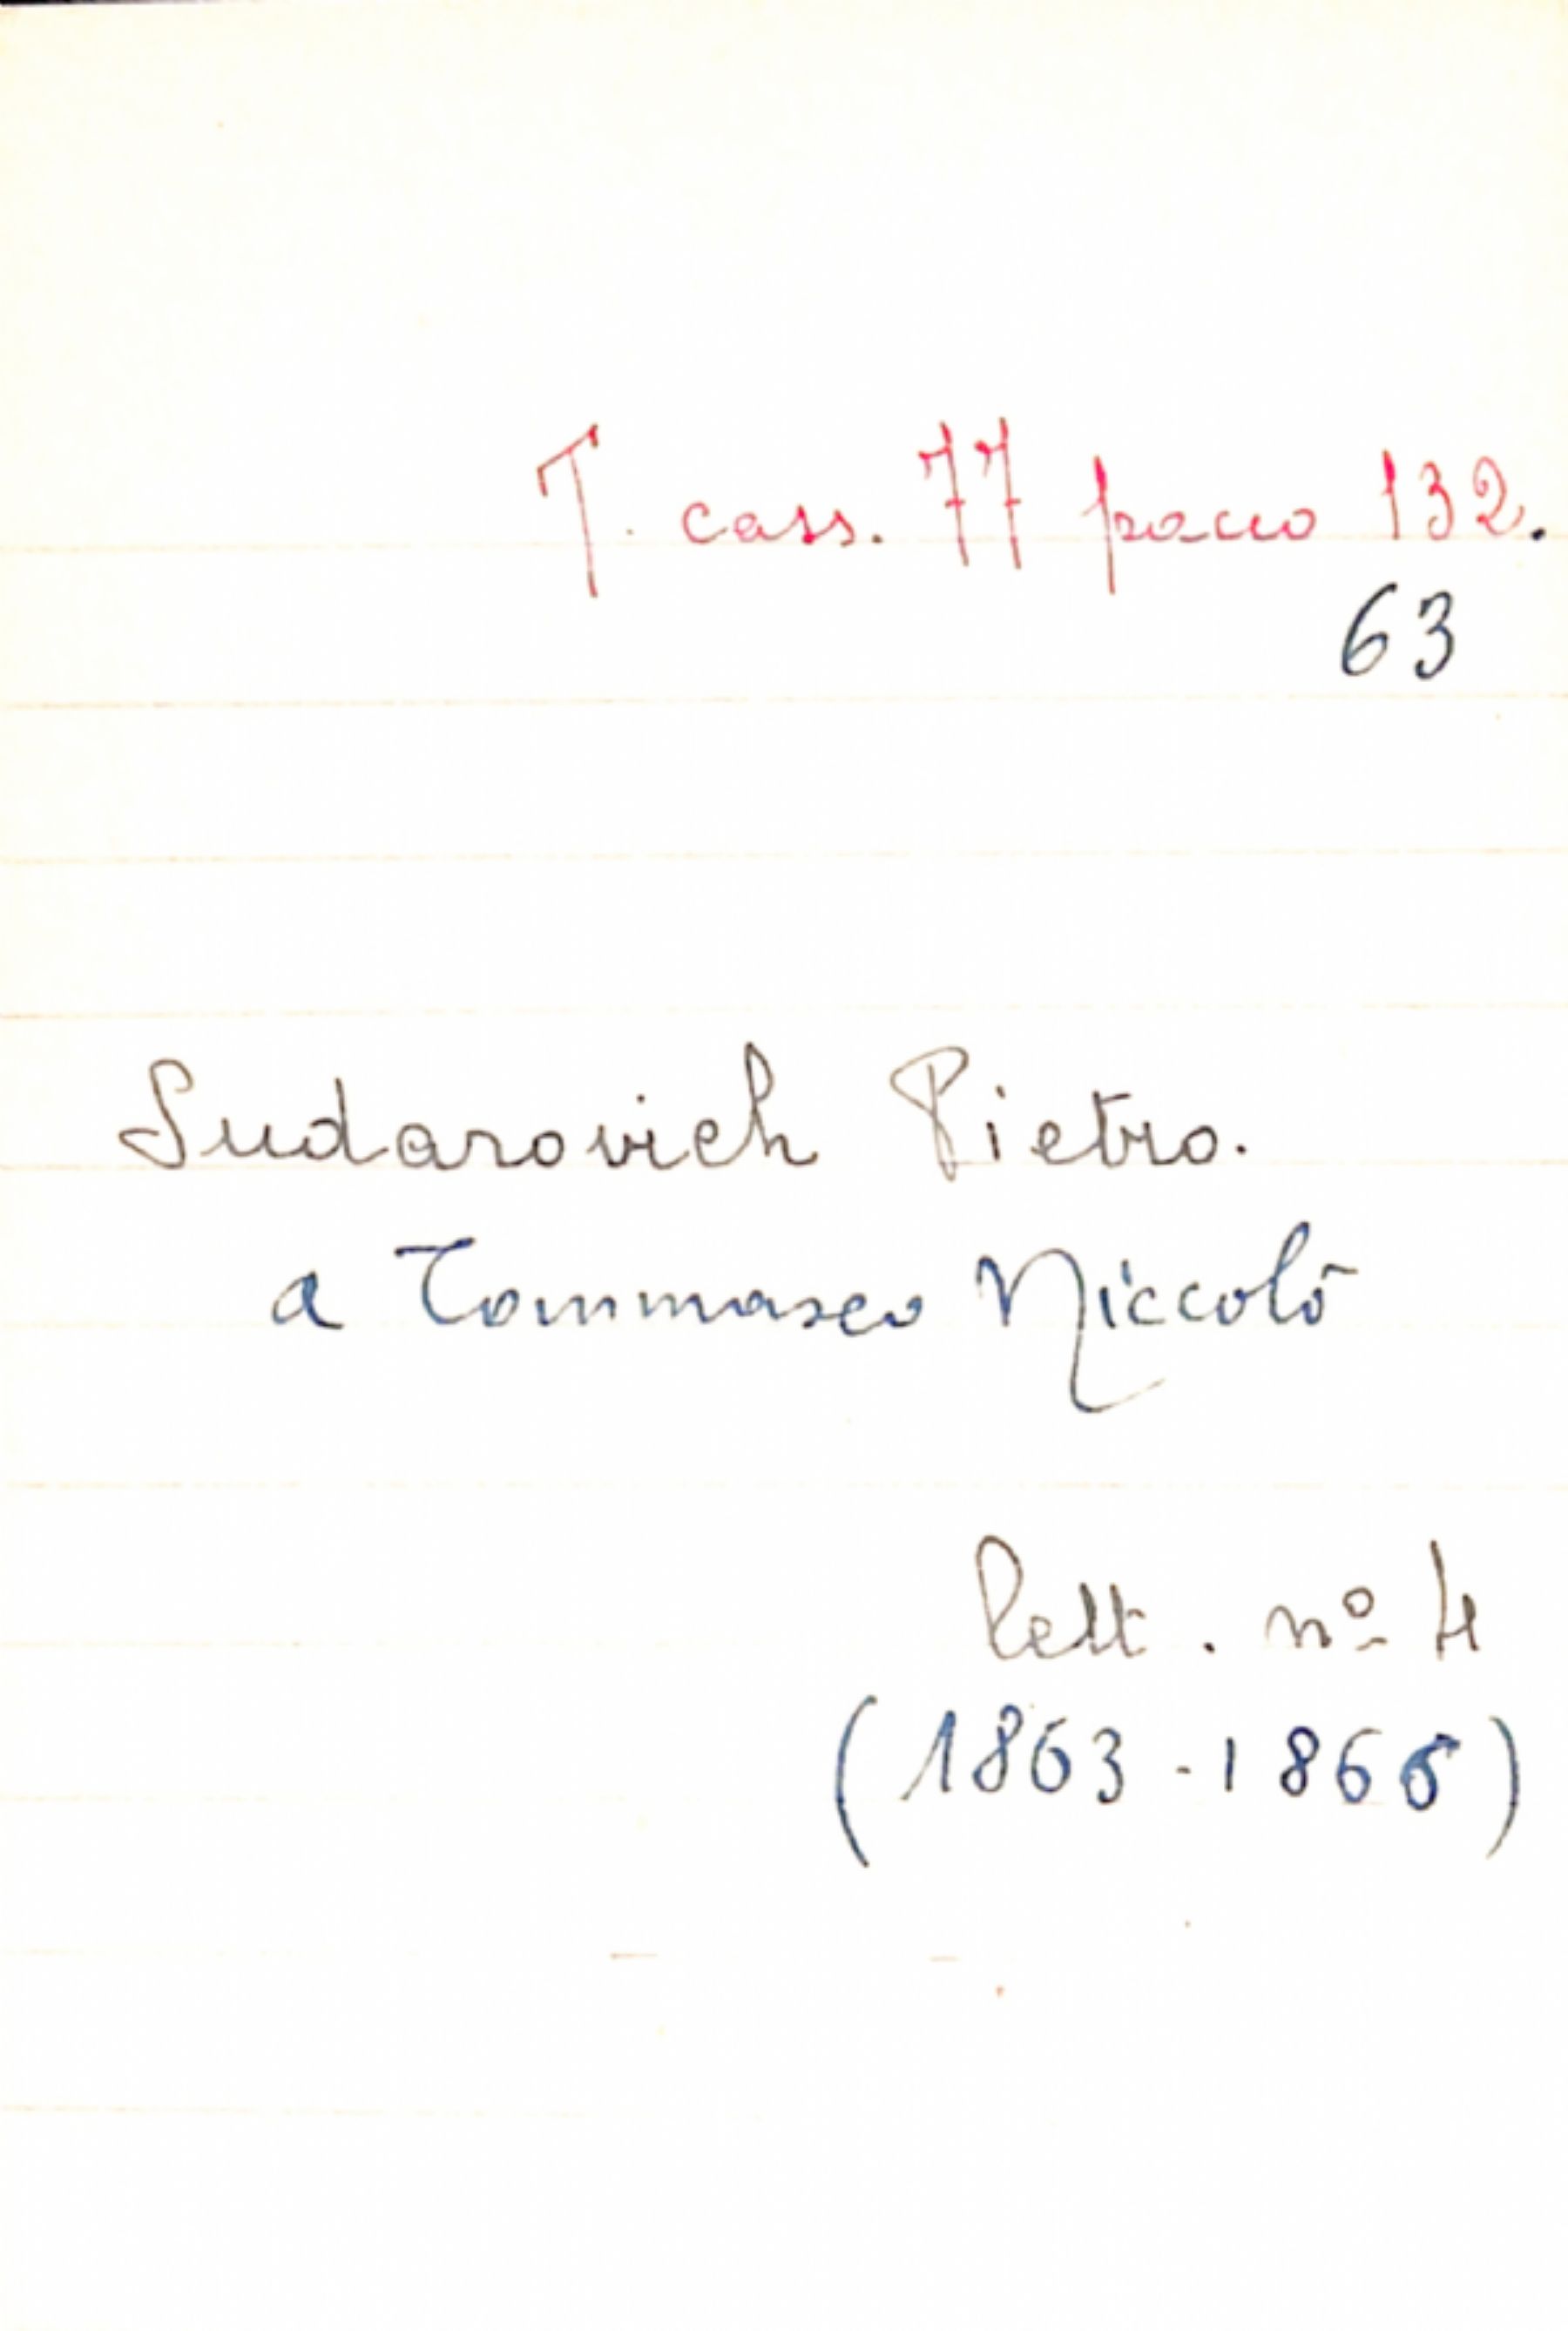 T. cass. 77 pacco 132.
63
Sudarovich Pietro.
a Tommaseo Niccolò
lett. nº 4
(1863-1866)